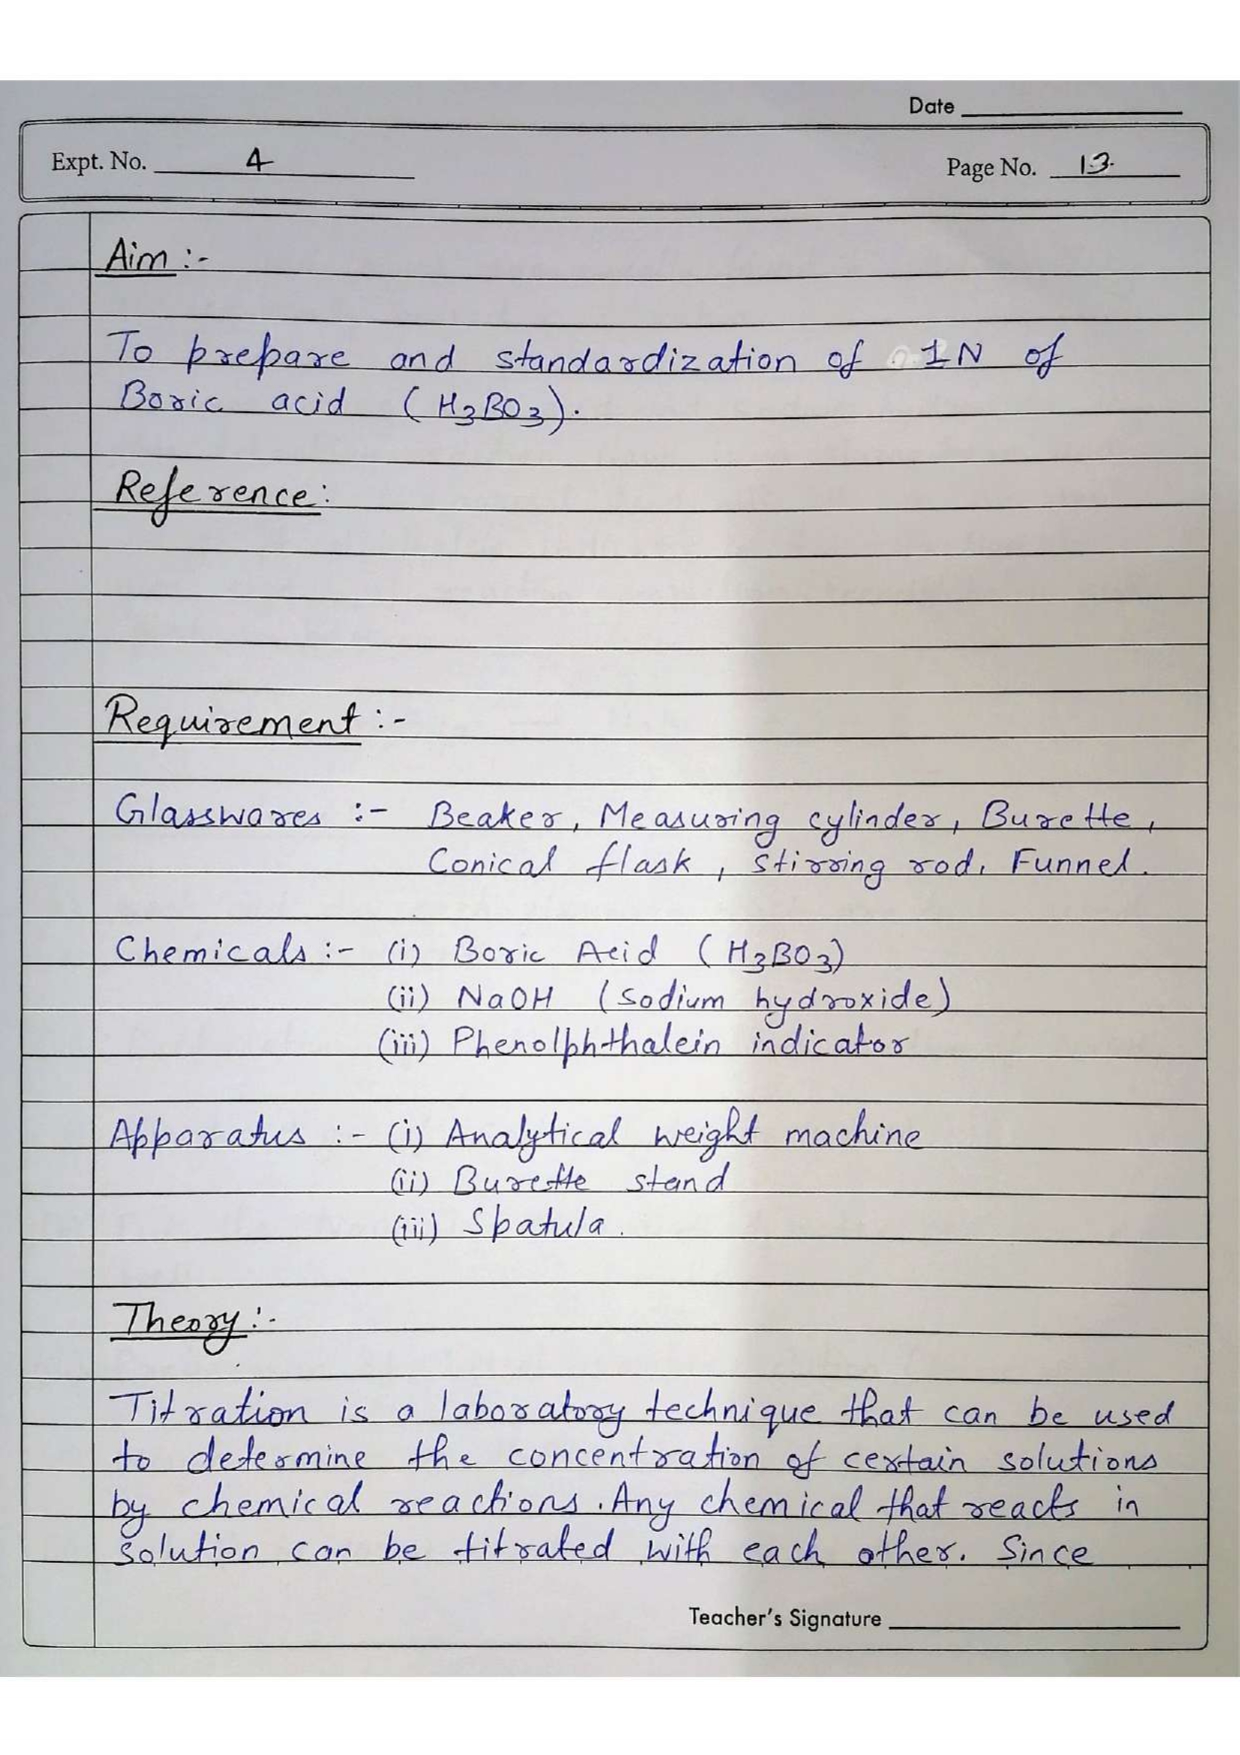 Date
Expt. No. 4
Page No. 13.
Aim :-
To prepare and standardization of 1N of
Boric acid (H3BO3).
Reference:
Requirement :-
Glasswares :- Beaker, Measuring cylinder, Burette,
Conical flask, Stirring rod, Funnel.
Chemicals :- (i) Boric Acid (H3BO3)
(ii) NaOH (Sodium hydroxide)
(iii) Phenolphthalein indicator
Apparatus :- (i) Analytical weight machine
(ii) Burette stand
(iii) Spatula.
Theory :-
Titration is a laboratory technique that can be used
to determine the concentration of certain solutions
by chemical reactions. Any chemical that reacts in
solution can be titrated with each other. Since
Teacher's Signature